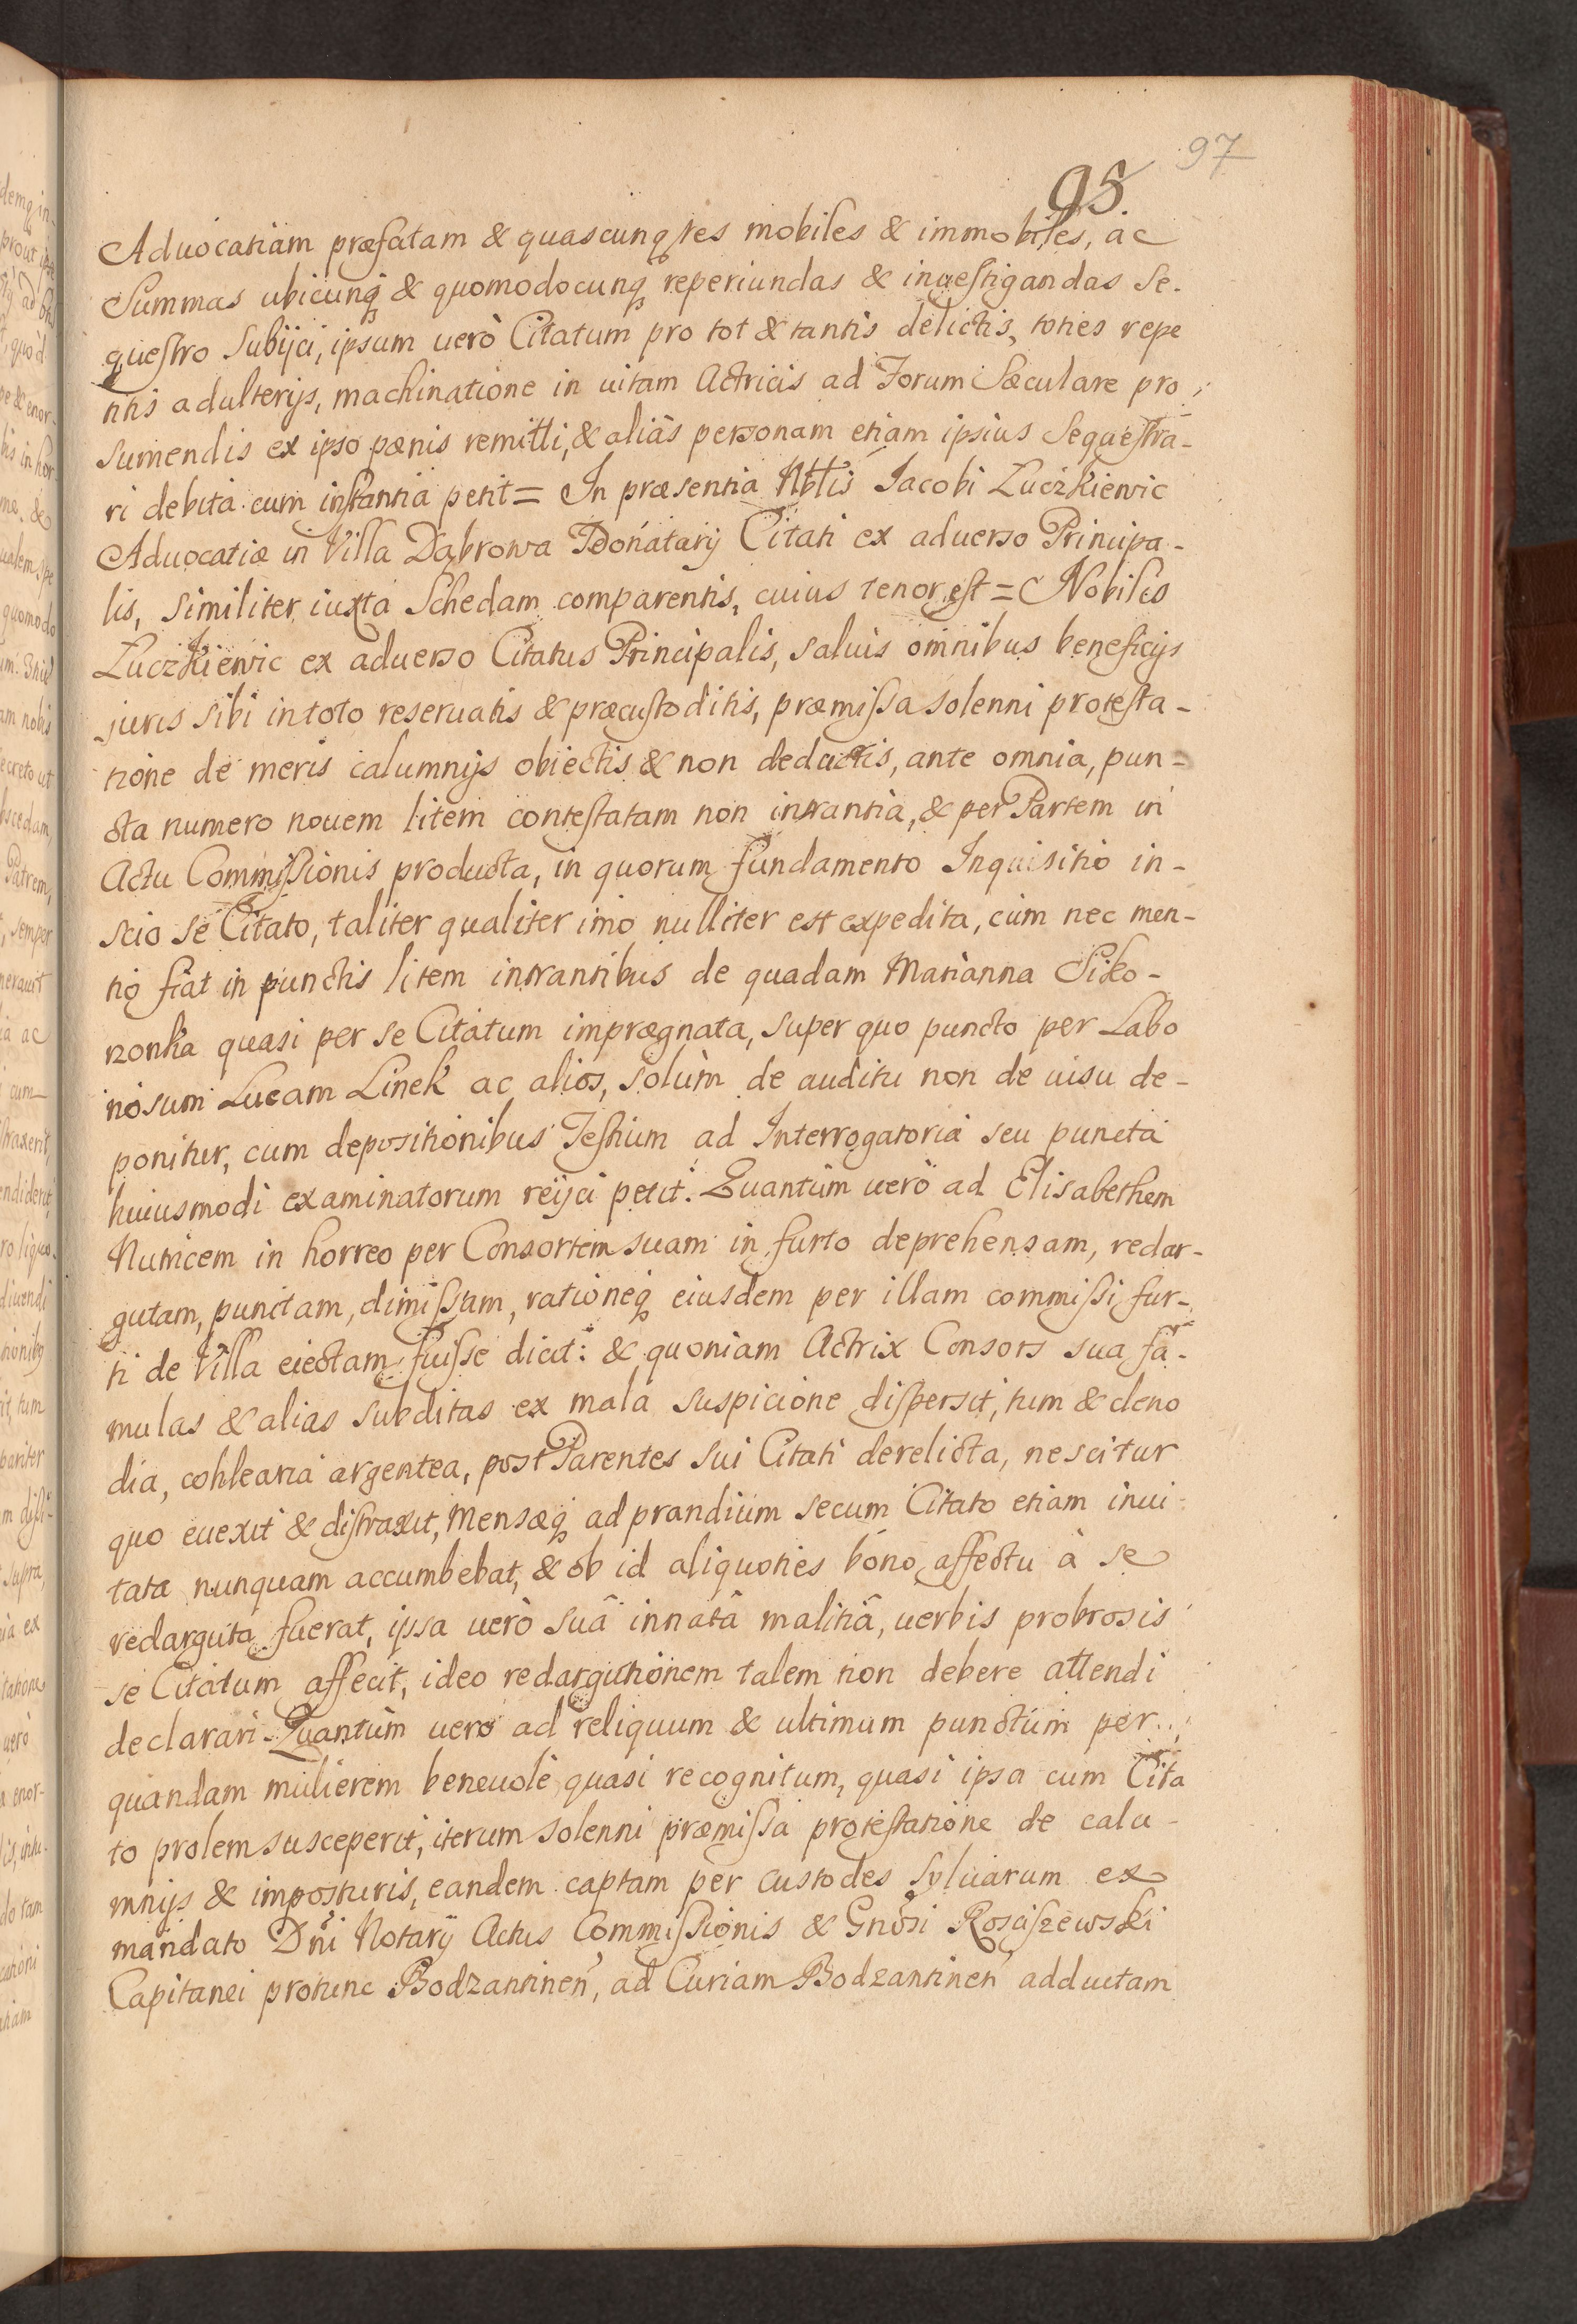 97
95.
Aduocatiam præfatam & quascunq res mobiles & immobiles, ac
Summas ubicunq & quomodocunq reperiundas & inuestigandas Se-
questro Subijci, ipsum uerò Citatum pro tot & tantis delictis, toties repe
titis adulterijs, machinatione in uitam Actricis ad Forum Sæculare pro
sumendis ex ipso pænis remitti, & aliàs personam etiam ipsius Sequestra-
ri debita cum instantia petit = In præsentia Nbtis Jacobi Luczkiewic
Aduocatiæ in Villa Dąbrowa Donatarij Citati ex aduerso Principa-
lis, similiter iuxta Schedam comparentis, cuius tenor est = Nobilis
Luczkiewic ex aduerso Citatus Principalis, saluis omnibus beneficijs
juris sibi in toto reseruatis & præcustoditis, præmissa solenni protesta-
tione de meris calumnijs obiectis & non deductis, ante omnia, pun-
cta numero nouem litem contestatam non intrantia, & per Partem in
Actu Commissionis producta, in quorum fundamento Inquisitio in-
scio se Citato, taliter qualiter imo nulliter est expedita, cùm nec men-
tio fiat in punctis litem intrantibus de quadam Marianna Siko-
rzonka quasi per se Citatum imprægnata, super quo puncto per Labo
riosum Lucam Linek ac alios, solùm de auditu non de uisu de-
ponitur, cum depositionibus Testium ad Interrogatoria seu puncta
huiusmodi examinatorum reijci petit. Quantùm uerò ad Elisabethem
Nutricem in horreo per Consortem suam in furto deprehensam, redar-
gutam, punitam, dimissam, rationeq eiusdem per illam commissi fur-
ti de Villa eiectam fuisse dicit: & quoniam Actrix Consors sua fa-
mulas & alias subditas ex mala suspicione dispersit, tum & cleno
dia, cohlearia argentea, post Parentes sui Citati derelicta, nescitur
quo euexit & distraxit, mensæq ad prandium secum Citato etiam inui-
tata nunquam accumbebat, & ob id aliquoties bono affectu à se
redarguta fuerat, ipsa uerò suâ innatâ malitiâ, uerbis probrosis
se Citatum affecit, ideo redargutionem talem non debere attendi
declarari. Quantùm uerò ad reliquum & ultimum punctum per
quandam mulierem beneuolè quasi recognitum, quasi ipsa cum Cita
to prolem susceperit, iterum solenni præmissa protestatione de calu-
mnijs & imposturis, eandem captam per custodes syluarum ex
mandato Dni Notarij Actus Commissionis & Gnosi Rosciszewski
Capitanei protunc Bodzantinen, ad Curiam Bodzantinen adductam